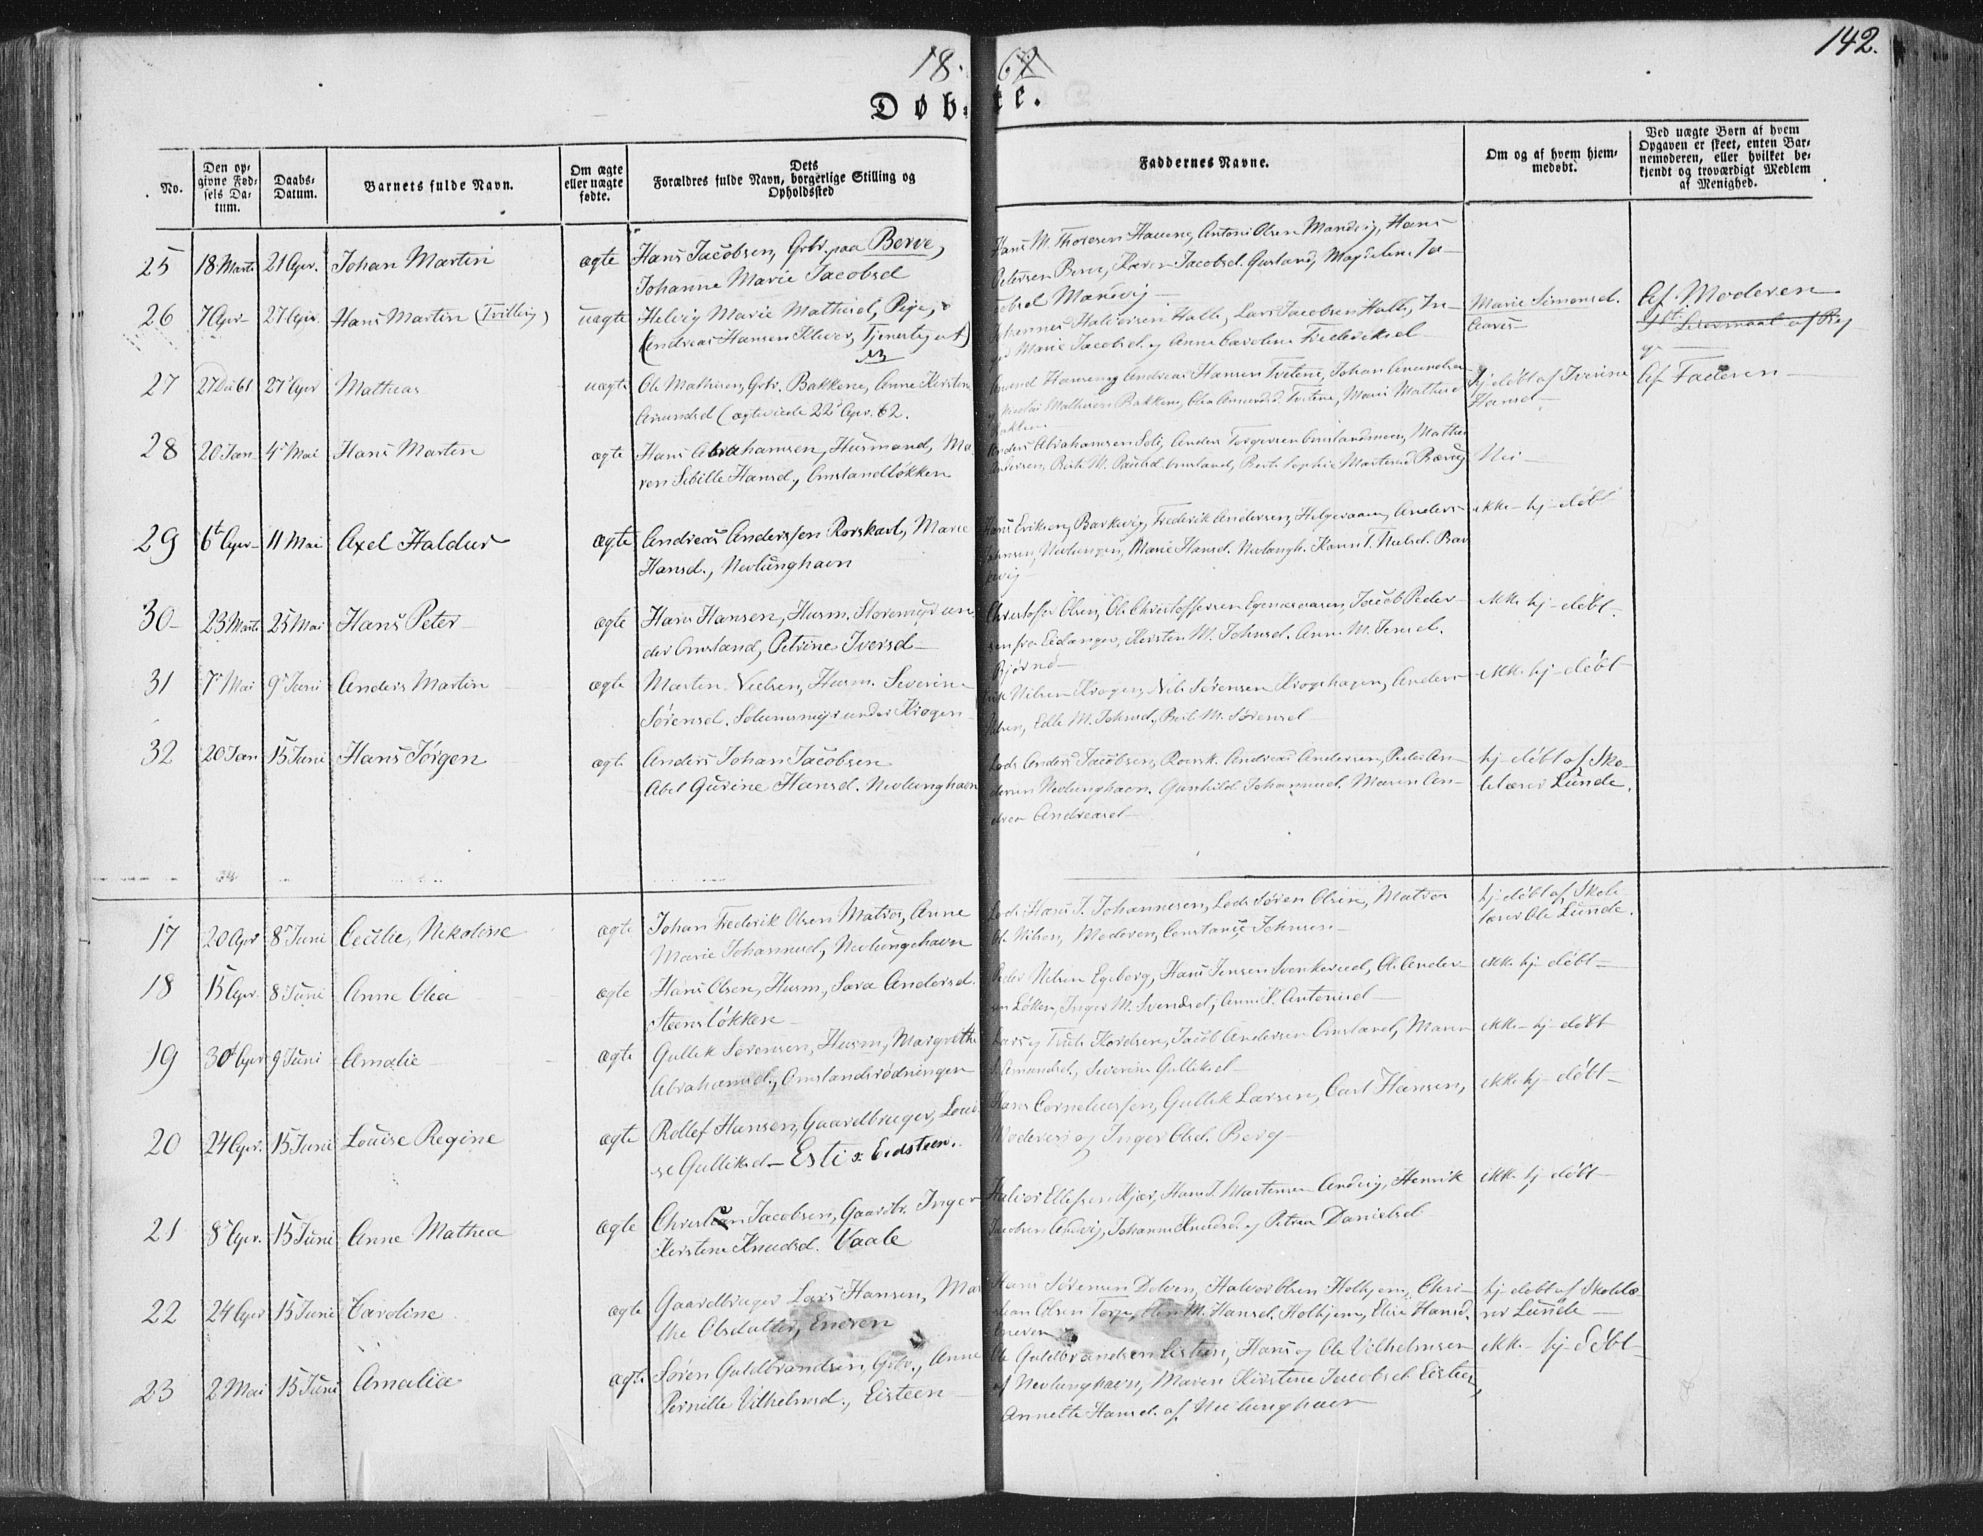 142.
18 61
Døbte.
No.
Den opgivne Fødsels Datum.
Daabs-Datum.
Barnets fulde Navn.
Om ægte eller uægte fødte.
Dets Forældres fulde Navn, borgerlige Stilling og Opholdssted
Faddernes Navne.
Om og af hvem hjemmedøbt.
Ved uægte Børn af hvem Opgaven er skeet, enten Barnemoderen, eller hvilket bekjendt og troværdigt Medlem af Menighed.
25 18 Marts 21 Apr. Johan Martin ægte Hans Jacobsen, Grbr. paa Berve,
Johanne Marie Jacobsd
Hans M. Thoresen Haune, Anton Olsen Manvig, Hans
Petersen Berve, Karen Jacobsd. Gusland, Magdelene Ja-
cobsd Manvig
26 7 Apr 27 Apr. Hans Martin (Tvilling) uægte Helvig Marie Mathisd, Pige, o
(Andreas Hansen Klever, Tjenestegut)
Johannes Halvorsen Halle, Lars Jacobsen Halle, In-
ger Marie Jacobsd. og Anne Caroline Frederiksd
Marie Simonsd.
Af Moderen
27 27 De 61 27 Apr Mathias uægte Ole Mathisen, Grbr. Bakkene, Anne Kirstine
Amundsd (ægteviede 22 Apr. 62.
Amund Hansen og Andreas Hansen Tvetene, Johan Amundsen
og Nicolai Mathisen Bakkene, Olea Amundsd. Tvetene, Maris Mathisd
Bakken
hj. døbt af Iverine
Hansd
Af Faderen
28 20 Jan 4 Mai Hans Martin ægte Hans Abrahamsen, Husmand, Ma
ren Sibille Hansd., Omslandløkken
Anders Abrahamsen Solie, Anders Torgersen Omslandmoen, Mathis
Andersen, Berte M. Paulsd Omsland, Berte Sophie Martinsd Rævig
Nei
29 6t Apr 11 Mai Axel Haldur ægte Andreas Anderssen Rørskart, Maren
Hansd., Nevlunghavn
Hans Eriksen, Barkevig, Frederik Andersen, Helgeroaen, Anders
Johnsen, Nevlungen, Marie Hansd. Nevlungh. Karen T. Nielsd. Bar
kevig
ikke hj-døbt
30 23 Marts 25 Mai Hans Peter ægte Hans Hansen, Husm. Storemyr un-
der Omsland, Petrine Iversd
Christoffer Olsen, Ole Christoffersen Egenæsaasen, Jacob Peder-
sen fra Eidanger, Kirsten M. Johnsd. Anne M. Jensd.
Bjørnø
ikke hj-døbt
31 7 Mai 9 Juni Anders Martin ægte Martin Nielsen, Husm. Severine
Sørensd. Solumsmyr under Krogen
Nilsen Krogen, Nils Sørensen Krogshagen, Anders
Nilsen, Edle M. Johnsd., Berte M. Sørensd
ikke hj-døbt
32 20 Jan 15 Juni Hans Jørgen ægte Anders Johan Jacobsen
Abel Gurine Hansd. Nevlunghavn
Lods Anders Jacobsen, Rørsk. Andreas Andersen, Peder An-
dersen Nevlunghavn. Gunhild Johannesd. Maren An-
drea Andreasd
hj-døbt af Sko-
lelærer Lunde.
17 20 Apr 8 Juni Cecilie Nikoline ægte Johan Frederik Olsen Matros, Anne
Marie Johannesd, Nevlunghavn
Lods Hans J. Johannesen, Lods Søren Olsen, Matros
Ole Nilsen, Moderen, Constance Johnsen
hj-døbt af Skole-
lærer Ole Lunde.
18 15 Apr. 8 Juni Anne Olea ægte Hans Olsen, Husm, Sara Andersd.
Steensløkken
Peder Nilsen Egeberg, Hans Jensen Svenkerud, Ole Ander-
sen Løkken, Inger M. Svendsd, Anne K. Antonisd
ikke hj-døbt
19 30t Apr 9 Juni Amalie ægte Gullik Sørensen, Husm, Margrethe
Abrahamsd., Omslandsrødningen
Lars og Truls Kordsen, Jacob Andersen Omsland, Maren
Amundsd., Severine Gulliksd
ikke hj-døbt
20 24 Apr. 15 Juni Louise Regine ægte Rollef Hansen, Gaardbruger, Loui-
se Gulliksd Esti v. Eidsteen.
Hans Corneliussen, Gullik Larsen, Carl Hansen,
Moderen og Inger Olsd. Berg
ikke hj-døbt
21 8 Apr. 15 Juni Anne Mathea ægte Christian Jacobsen, Gaardbr. Inger
Kirstine Knudsd. Vaale
Halvor Ellefsen Kjær, Hans J. Martinsen Andvig, Henrik
Jacobsen Andvig, Johanne Knudsd. og Petrea Danielsd
ikke hj-døbt
22 24 Apr 15 Juni Caroline ægte Gaardbruger Lars Hansen, Mar
the Olsdatter, Eneren
Hans Sørensen Dolven, Halvor Olsen Holhjem, Chri-
stian Olsen Torp, Olea M. Hansd. Holhjem, Elise Hansd.
Eneren
hj-døbt af Skolelæ
rer Lunde
23 2 Mai 15 Juni Amalia ægte Søren Guldbrandsen, Grbr., Anne
Pernille Vilhelmsd., Eisteen
Ole Guldbrandsen Eisteen, Hans og Ole Vilhelmsen
af Nevlunghavn, Maren Kirstine Jacobsd. Eisteen,
Annette Hansd. af Nevlunghavn
ikke hj-døbt